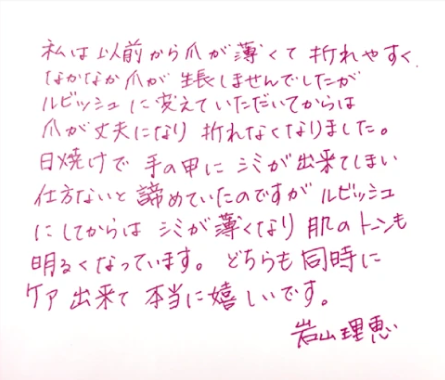 私は以前から爪が薄くて折れやすく
なかなか爪が生長しませんでしたが
ルビッシュに変えていただいてからは
爪が丈夫になり折れなくなりました。
日焼けで手の甲にシミが出来てしまい
仕方ないと諦めていたのですがルビッシュ
にしてからはシミが薄くなり肌のトーンも
明るくなっています。どちらも同時に
ケア出来て本当に嬉しいです。
岩山理恵